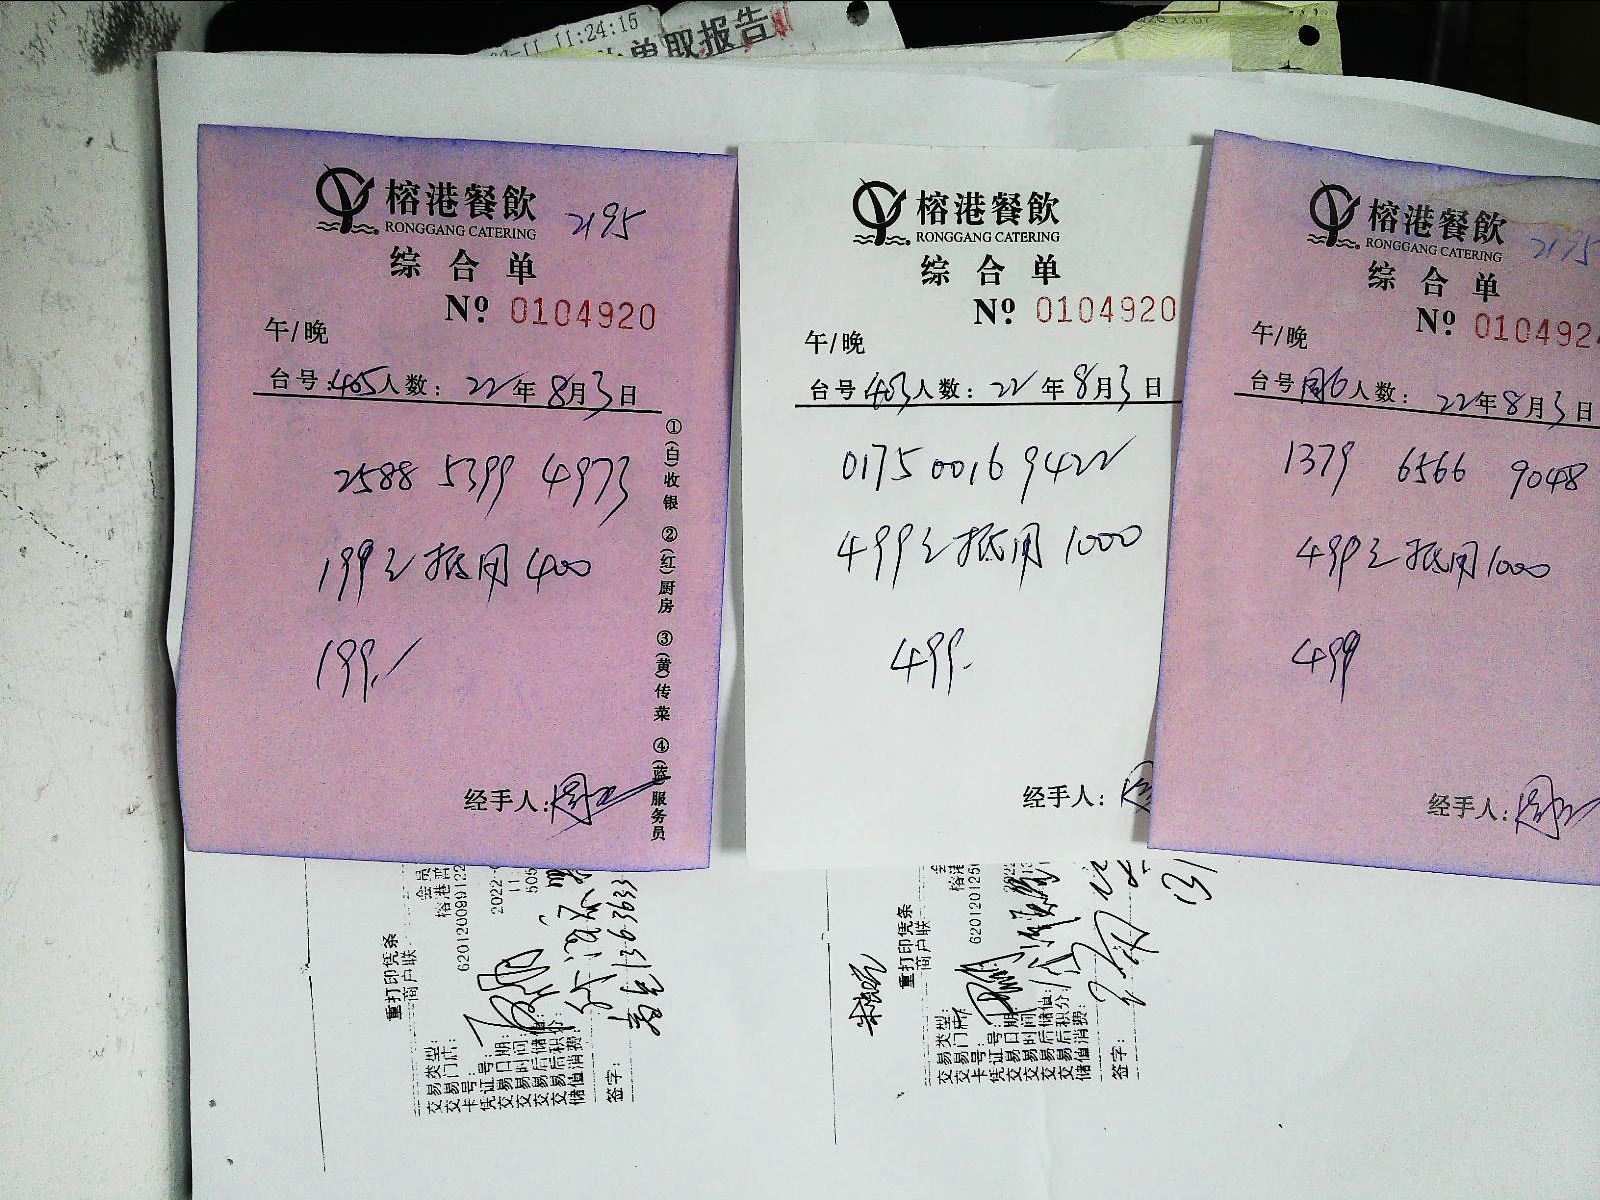 11:24:15
单取报告
榕港餐飲
RONGGANG CATERING
2195
综合单
№ 0104920
午/晚
台号:405人数: 22年8月3日
2588 5399 4973
199元抵用400
199.
经手人:
①(白)收银 ②(红)厨房 ③(黄)传菜 ④(蓝)服务员
榕港餐飲
RONGGANG CATERING
综合单
№ 0104920
午/晚
台号:403人数: 22年8月3日
0175 0016 9422
499元抵用1000
499.
经手人:
榕港餐飲
RONGGANG CATERING
2175
综合单
№ 010492
午/晚
台号 人数: 22年8月3日
1379 6566 9048
499元抵用1000
499
经手人:
重打印凭条
商户联
交易类型:
交易门店:
卡号:
凭证号:
交易日期:
交易时间:
交易后储值:
交易后积分:
储值消费:
签字:
会员
榕港
2022
重打印凭条
商户联
交易类型:
交易门店:
卡号:
凭证号:
交易日期:
交易时间:
交易后储值:
交易后积分:
储值消费:
签字:
会员
榕港
131